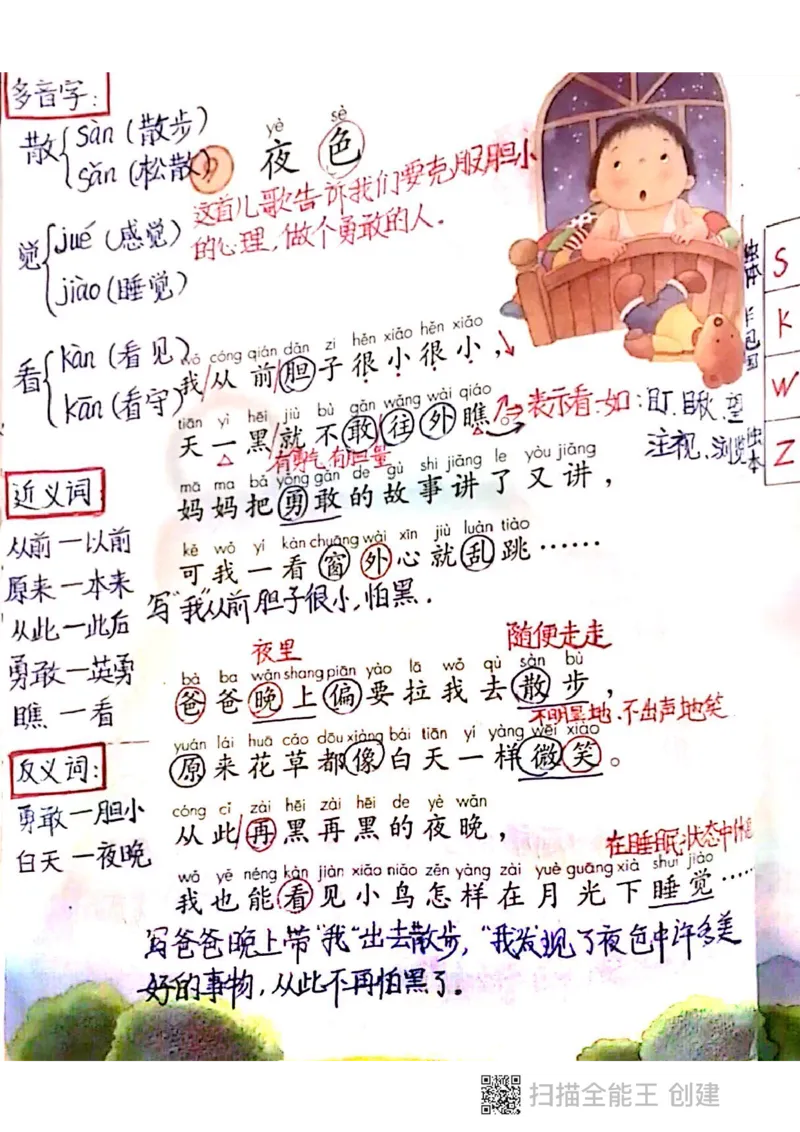 多音字:
散
sàn (散步)
sǎn (松散)
yè sè
夜色
这首儿歌告诉我们要克服胆小
的心理,做个勇敢的人.
觉
jué (感觉)
jiào (睡觉)
看
kàn (看见)
kān (看守)
近义词
从前—以前
原来—本来
从此—此后
勇敢—英勇
瞧—看
反义词:
勇敢—胆小
白天—夜晚
wǒ cóng qián dǎn zi hěn xiǎo hěn xiǎo
我从前胆子很小很小,
tiān yì hēi jiù bù gǎn wǎng wài qiáo
天一黑就不敢往外瞧。
表示看.如:盯.瞅.望
注视、浏览
有勇气,有胆量
mā ma bǎ yǒng gǎn de gù shi jiǎng le yòu jiǎng
妈妈把勇敢的故事讲了又讲,
kě wǒ yí kàn chuāng wài xīn jiù luàn tiào
可我一看窗外心就乱跳……
写"我"从前胆子很小,怕黑.
夜里
随便走走
bà ba wǎn shang piān yào lā wǒ qù sàn bù
爸爸晚上偏要拉我去散步,
不明显地、不出声地笑
yuán lái huā cǎo dōu xiàng bái tiān yí yàng wēi xiào
原来花草都像白天一样微笑。
cóng cǐ zài hēi zài hēi de yè wǎn
从此再黑再黑的夜晚,
在睡眠状态中休息
wǒ yě néng kàn jiàn xiǎo niǎo zěn yàng zài yuè guāng xià shuì jiào
我也能看见小鸟怎样在月光下睡觉……
写爸爸晚上带"我"出去散步,"我"发现了夜色中许多美
好的事物,从此不再怕黑了。
S
K
W
Z
扫描全能王 创建